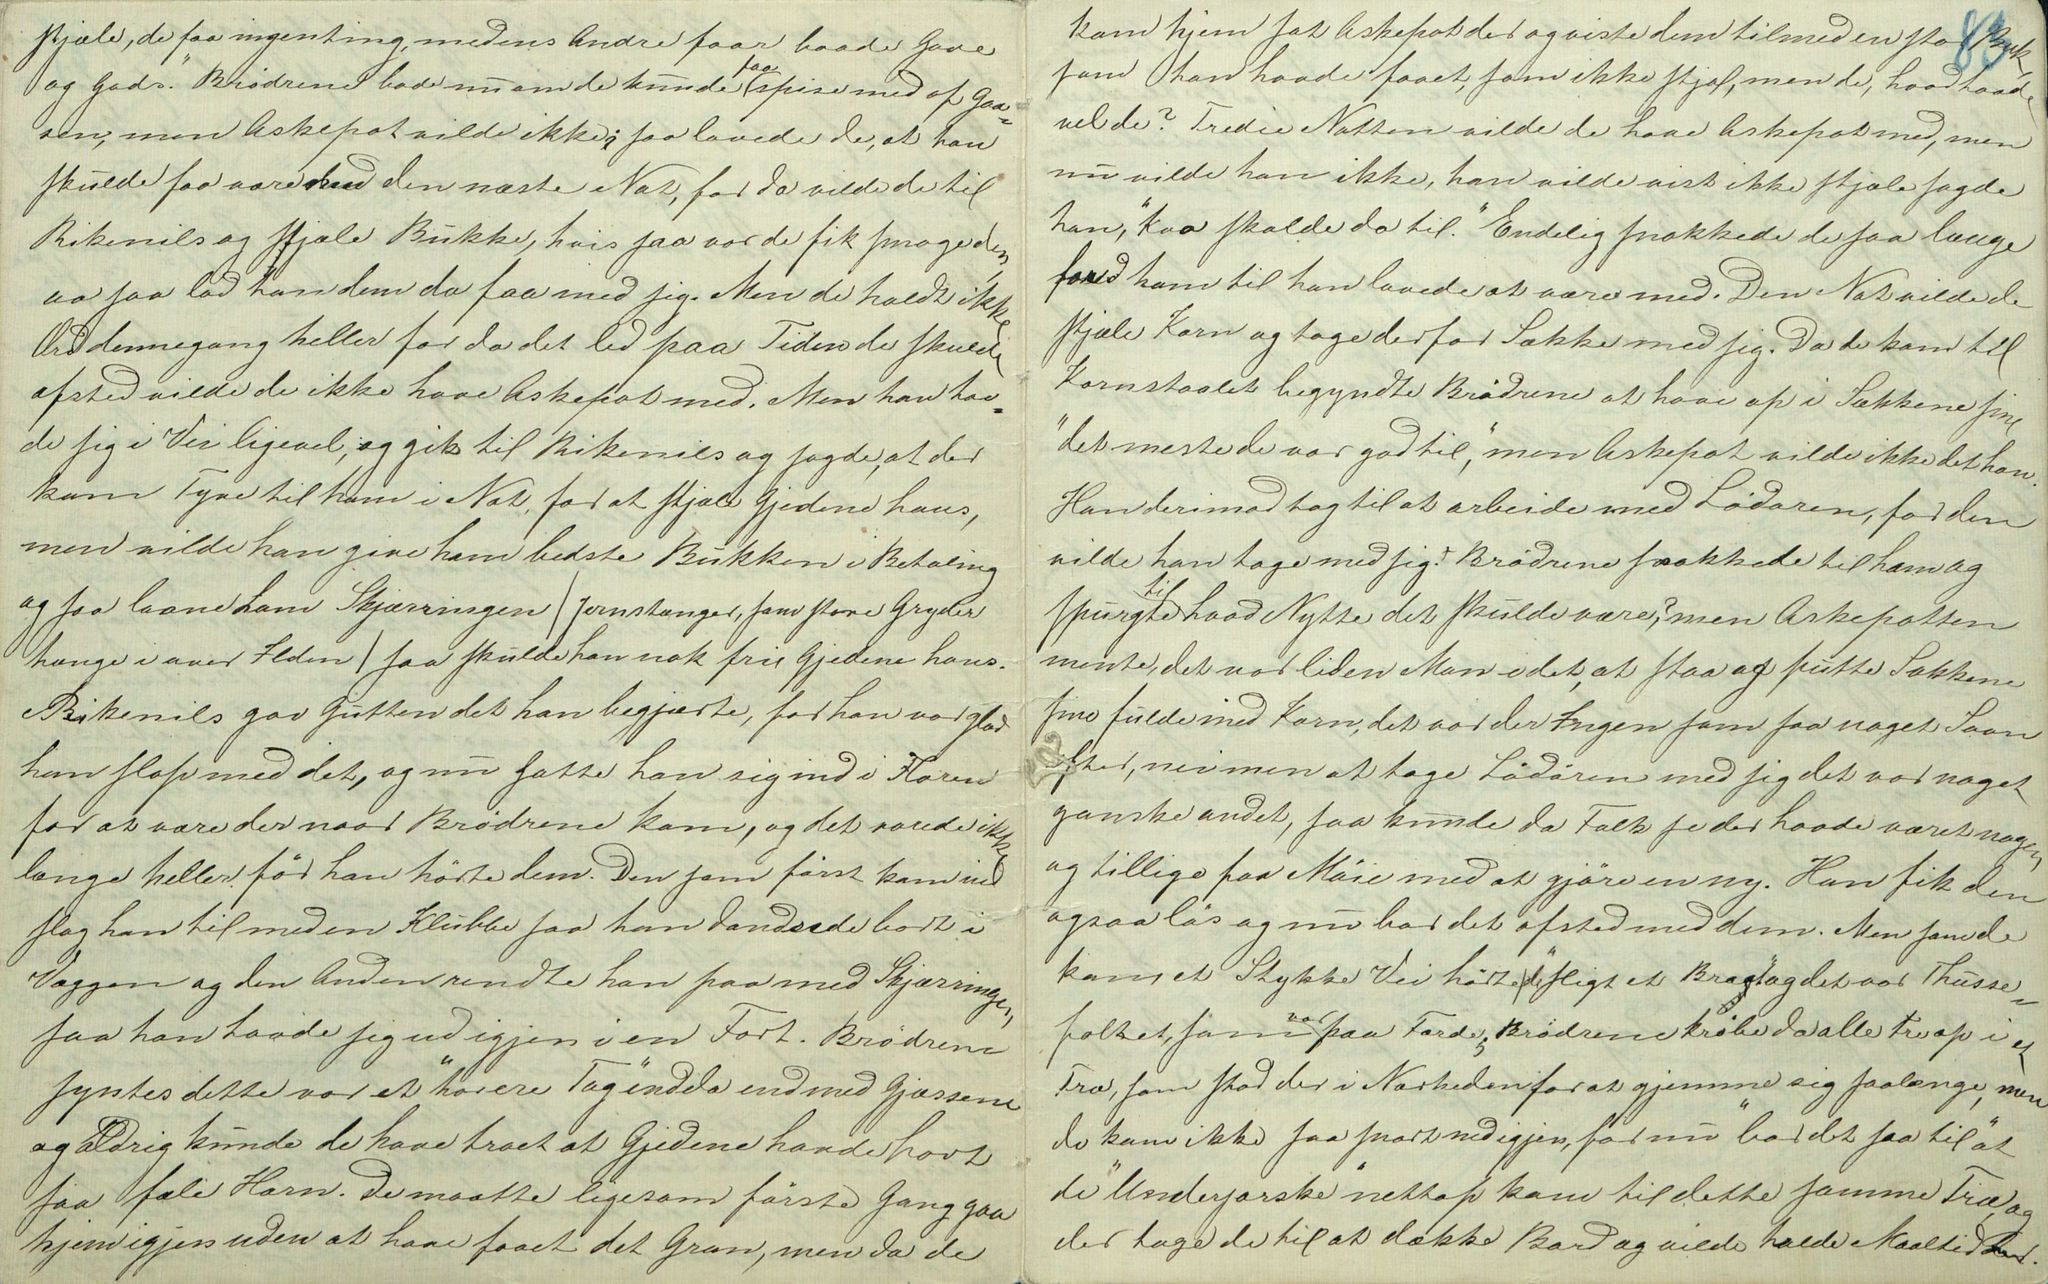 stjæle, de faa ingenting, medens Andre faar baade Gave
og Gods." Brødrene bade nu om de kunde faa spise med af Gaa-
sen, men Askepot vilde ikke; saa lavede de, at han
skulde faa være med den næste Nat, for da vilde de til
Rikenils og stjæle Bukke, hvis saa var de fik smage den,
aa saa lod han dem da faa med sig. Men de holdt ikke
Ord dennegang heller for da det led paa Tiden de skulde
afsted vilde de ikke have Askepot med. Men han hav-
de sig i Vei ligevel, og gik til Rikenils og sagde, at der
kom Tyve til ham i Nat, for at stjæle Gjedene hans,
men vilde han give ham bedste Bukken i Betaling
og saa laane ham Skjærringen / Jernstanger, som store Gryder
hænge i over Ilden / saa skulde han nok frie Gjedene hans.
Rikenils gav Gutten det han begjærte, for han var glad
han slap med det, og nu satte han sig ind i Floren
for at være der naar Brødrene kom, og det varede ikke
længe heller før han hørte dem. Den som først kom ind
slog han til med en Klubbe saa han dandsede bort i
Væggen og den Anden rendte han paa med Skjærringen,
saa han havde sig ud igjen i en Fart. Brødrene
syntes dette var et "hørere Tag" endda end med Gjæssene
og aldrig kunde de have troet at Gjedene havde havt
saa fæle Horn. De maatte ligesom første Gang gaa
hjem igjen uden at have faaet det Gran, men da de
kom hjem sat Askepot der og viste dem tilmed en stor Buk,
som han havde faaet, som ikke stjal, men de, hvad havde
vel de? Tredie Natten vilde de have Askepot med, men
nu vilde han ikke, han vilde vist ikke stjæle sagde
han, "kva skalde da til." Endelig snakkede de saa længe
for ham til han lavede at være med. Den Nat vilde de
stjæle Korn og toge derfor Sække med sig. Da de kom til
Kornstaalet begyndte Brødrene at have op i Sækkene sine
"det meste de var god til", men Askepot vilde ikke det han.
Han derimod tog til at arbeide med Lådøren, for den
vilde han tage med sig. Brødrene snakkede til ham og
spurgte til hvad Nytte det skulde være? men Askepotten
mente, det var liden Mon i det, at staa og putte Sækkene
sine fulde med Korn, det var der Ingen som saa noget Saan
efter, nei men at tage Lådøren med sig det var noget
ganske andet, saa kunde da Folk se der havde været nogen,
og tillige faa Møie med at gjøre en ny. Han fik den
ogsaa løs og nu bar det afsted med dem. Men som de
kom et Stykke Vei hørte de "sligt et Brag" og det var Thusse-
folket, som var paa Færde, Brødrene krøbe da alle tre op i et
Træ, som stod der i Nærheden for at gjemme sig saalænge, men
de kom ikke saa snart ned igjen, for nu "bar det saa til" at
de "Underjorske" nettop kom til dette samme Træ, og
der toge de til at dække Bord og vilde holde Maaltid